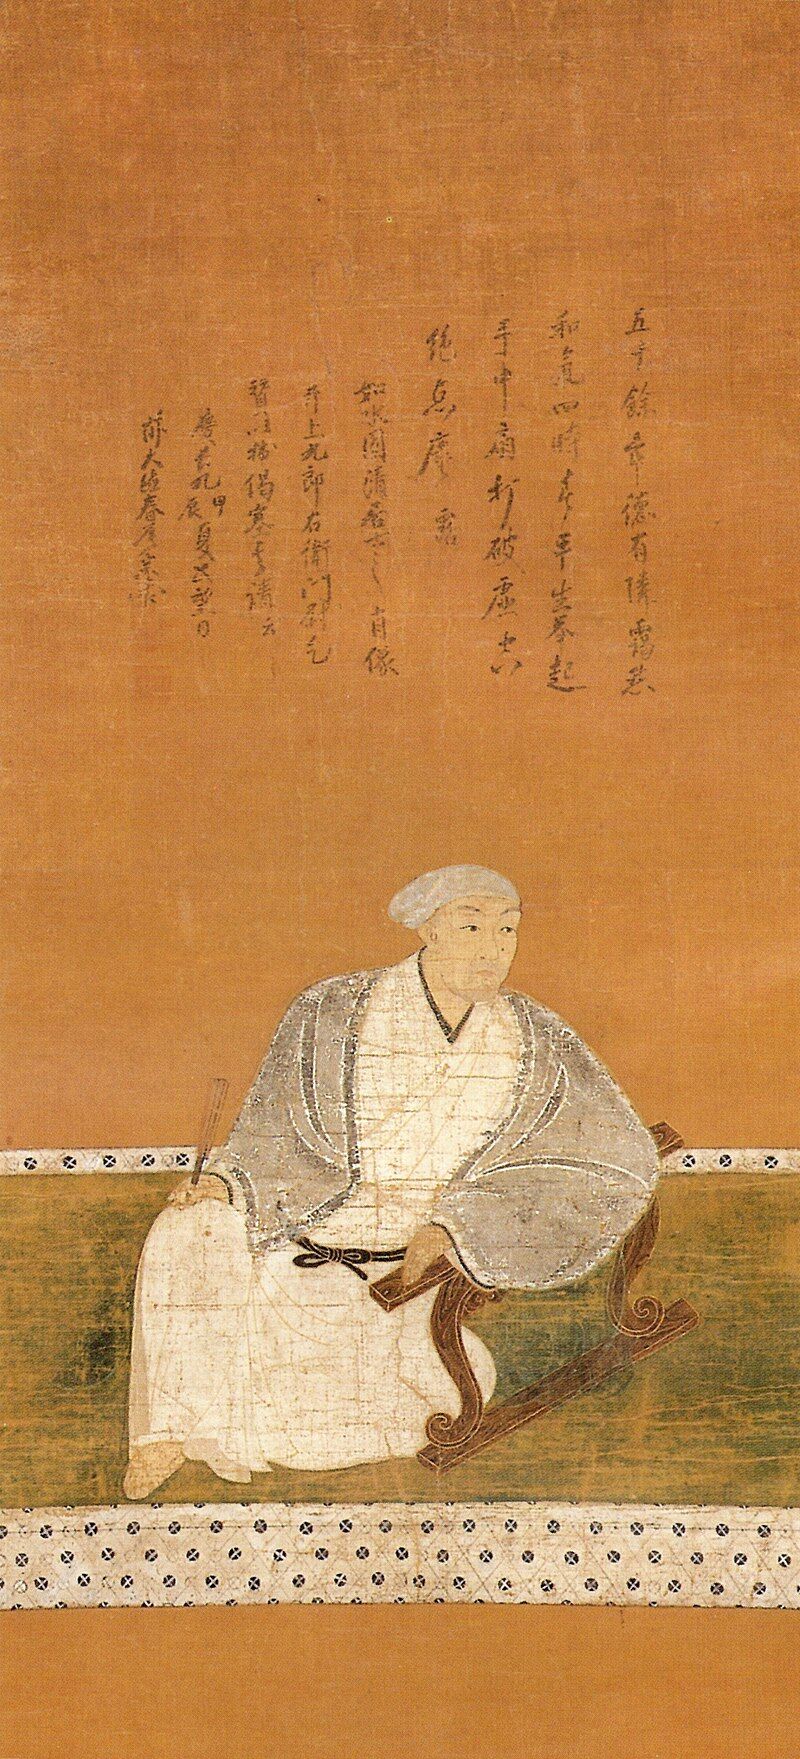 五十餘年德有隣靄然
和氣四時春平生拳起
手中扇打破虚空
絶点塵
如水圓清居士之肖像
井上九郎右衛門尉乞
賛以拙偈塞其請云
慶長九甲辰夏
前大徳春屋